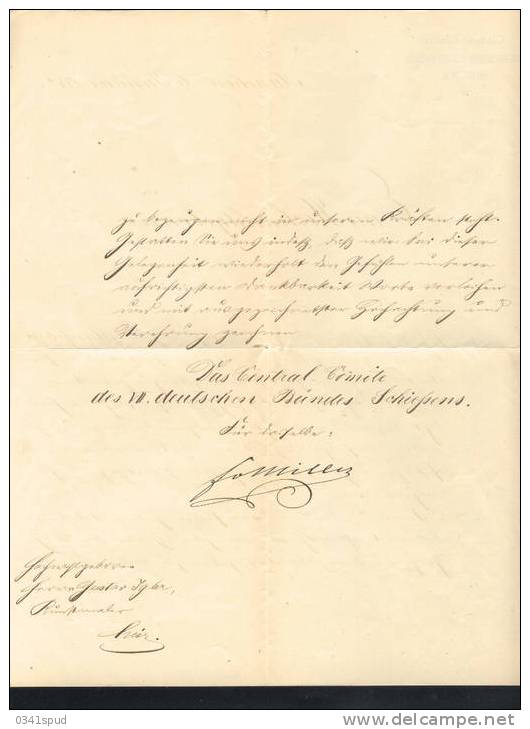 zu bezeugen nicht in unseren Kräften steht.
Gestatten Sie uns indeß, daß wir bei dieser
Gelegenheit wiederholt den Gefühlen unserer
aufrichtigsten Dankbarkeit Worte verleihen
und mit ausgezeichneter Hochachtung und
Verehrung zeichnen
Das Central-Comité
des VII. deutschen Bundes-Schießens.
Für dasselbe:
Hochwohlgeboren
Herrn Gustav Igler,
Kunstmaler
hier.
0341spud
www.delcampe.net